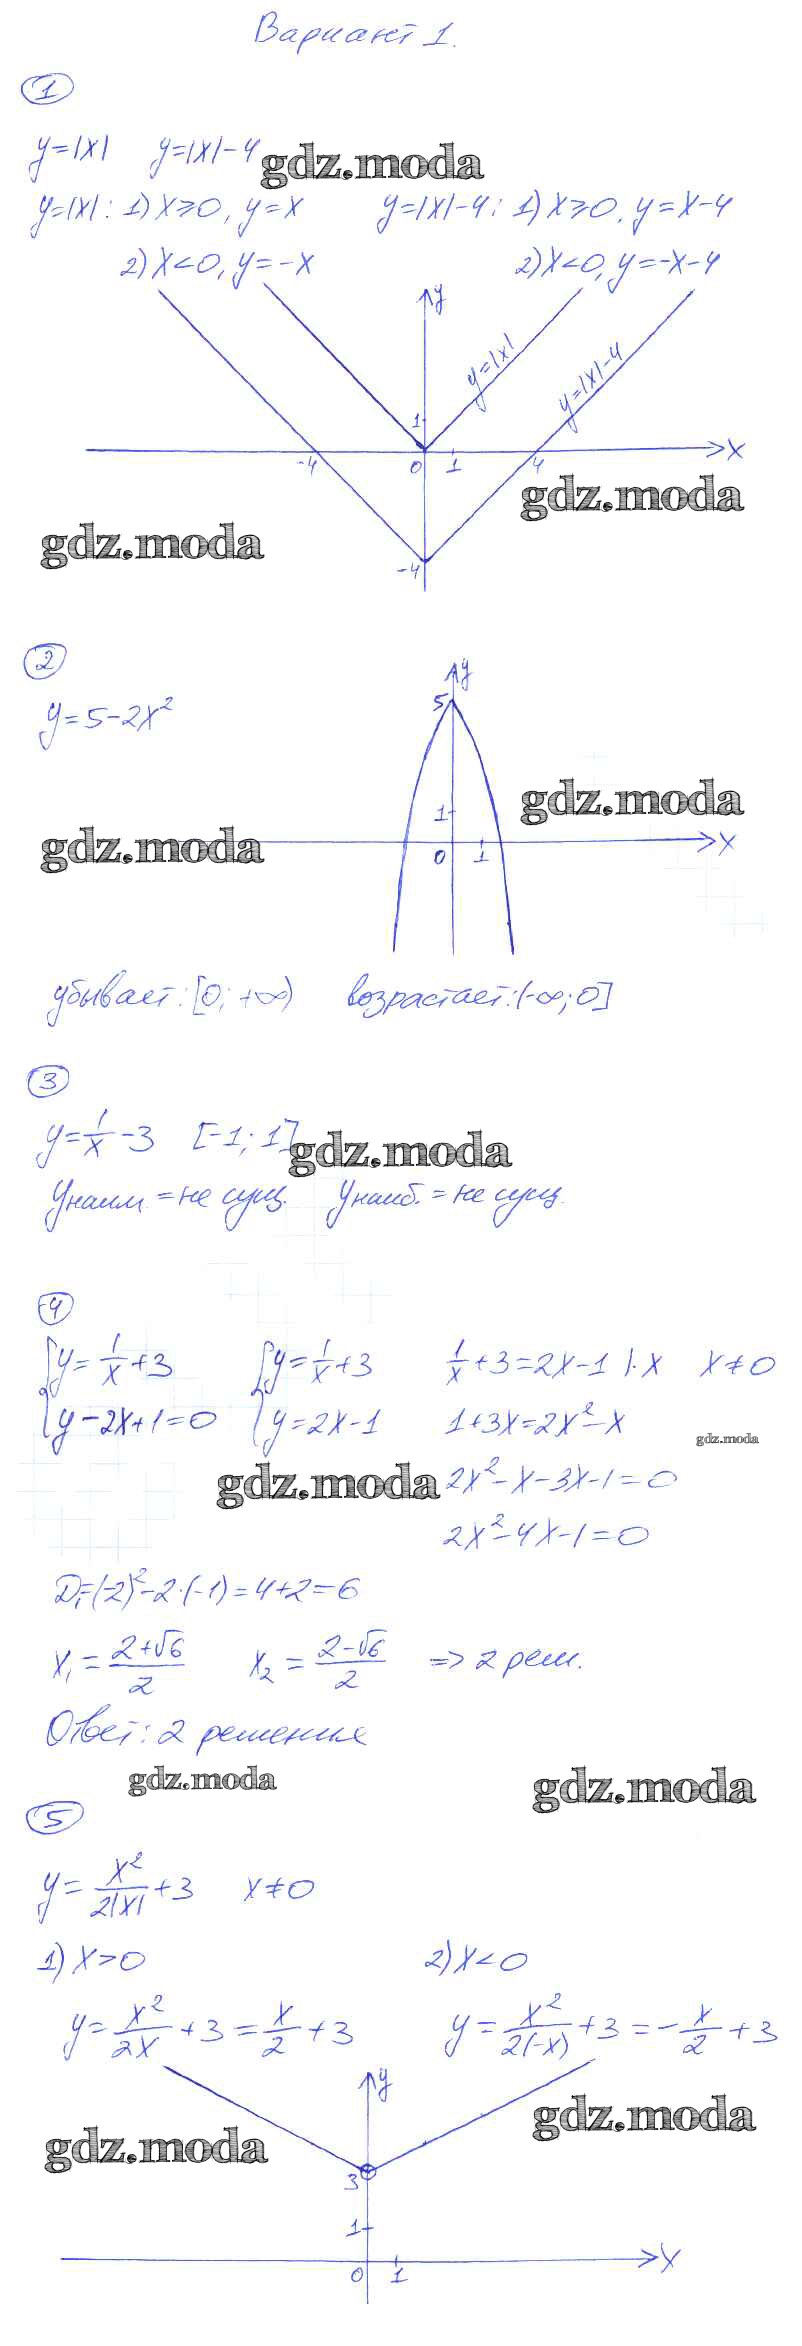 Вариант 1.
1
y=|x| y=|x|-4
gdz.moda
y=|x|: 1) x≥0, y=x y=|x|-4: 1) x≥0, y=x-4
2) x<0, y=-x 2) x<0, y=-x-4
y
y=|x|
y=|x|-4
1
-4 0 1 4 x
gdz.moda
gdz.moda
-4
2
y
5
y=5-2x²
gdz.moda
1
gdz.moda
0 1 x
убывает: [0; +∞) возрастает: (-∞; 0]
3
y=1/x-3 [-1; 1]
gdz.moda
yнаим. = не сущ. yнаиб. = не сущ.
4
{y=1/x+3 {y=1/x+3 1/x+3=2x-1 |·x x≠0
{y-2x+1=0 {y=2x-1 1+3x=2x²-x
gdz.moda
gdz.moda
2x²-x-3x-1=0
2x²-4x-1=0
D₁=(-2)²-2·(-1)=4+2=6
x₁=(2+√6)/2 x₂=(2-√6)/2 => 2 реш.
Ответ: 2 решения
gdz.moda
gdz.moda
5
y=x²/2|x|+3 x≠0
1) x>0 2) x<0
y=x²/2x+3=x/2+3 y=x²/2(-x)+3=-x/2+3
y
gdz.moda
gdz.moda
3
1
0 1 x